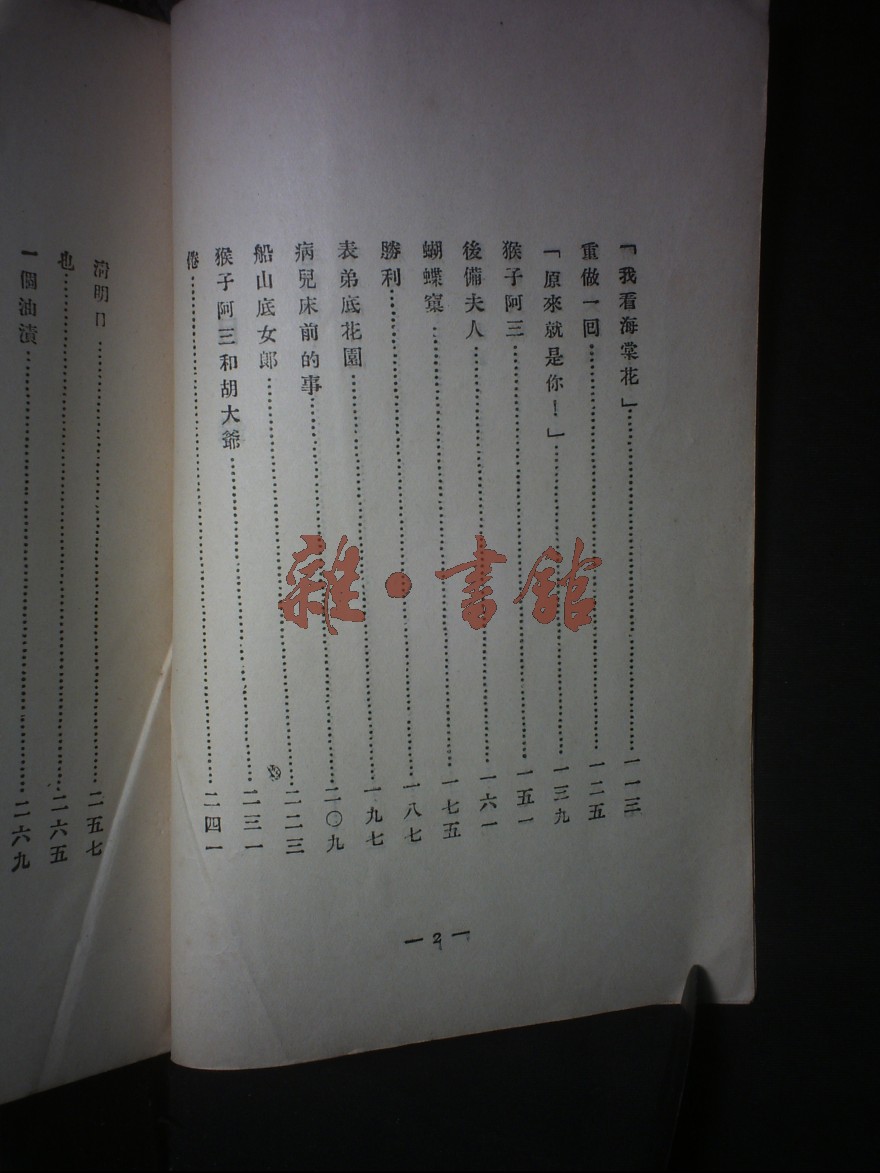 「我看海棠花」……一一三
重做一回……一二五
「原來就是你！」……一三九
猴子阿三……一五一
後備夫人……一六一
蝴蝶窠……一七五
勝利……一八七
表弟底花園……一九七
病兒床前的事……二〇九
船山底女郎……二二三
猴子阿三和胡大爺……二三一
倦……二四一
— 2 —
清明日……二五七
也……二六五
一個油漬……二六九
雜·書館